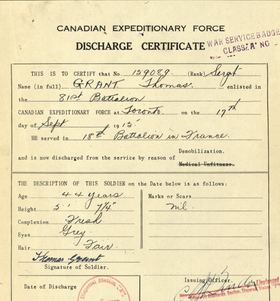 CANADIAN EXPEDITIONARY FORCE
DISCHARGE CERTIFICATE
WAR SERVICE BADGE
CLASS "A" No
THIS IS TO CERTIFY that No. (Rank) Sergt
Name (in full) GRANT Thomas. enlisted in
the 81st Battalion
CANADIAN EXPEDITIONARY FORCE at Toronto. on the 17th
day of Sept 1915.
HE served in 18th Battalion in France.
and is now discharged from the service by reason of Demobilization.
Medical Unfitness.
THE DESCRIPTION OF THIS SOLDIER on the Date below is as follows:
Age 44 years Marks or Scars
Height 5' 7½" nil.
Complexion Fresh
Eyes Grey
Hair Fair
Thomas Grant
Signature of Soldier.
Issuing Officer.
Date of Discharge